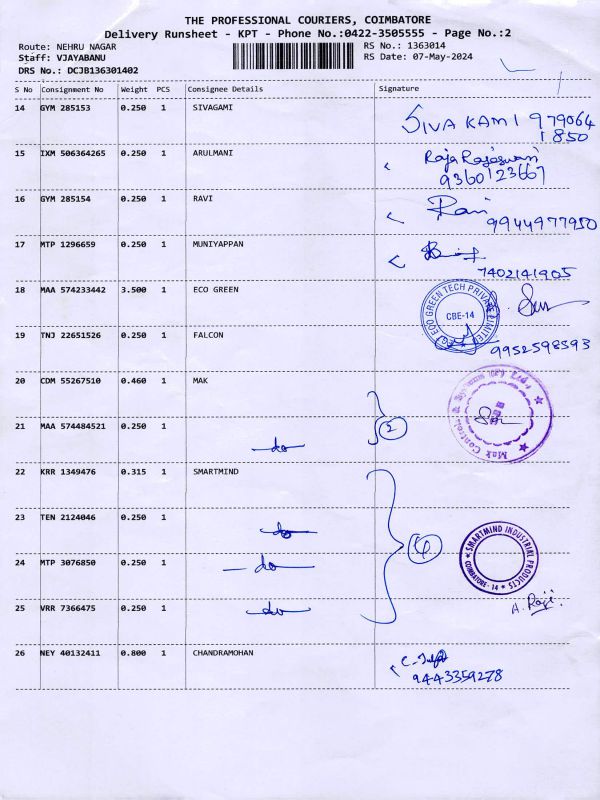 THE PROFESSIONAL COURIERS, COIMBATORE
Delivery Runsheet - KPT - Phone No.:0422-3505555 - Page No.:2
Route: NEHRU NAGAR RS No.: 1363014
Staff: VJAYABANU RS Date: 07-May-2024
DRS No.: DCJB136301402
S No Consignment No Weight PCS Consignee Details Signature
14 GYM 285153 0.250 1 SIVAGAMI SIVAKAMI 979064
1850
15 IXM 506364265 0.250 1 ARULMANI Raja Rajeswari
9360123667
16 GYM 285154 0.250 1 RAVI Ravi
9944977950
17 MTP 1296659 0.250 1 MUNIYAPPAN
7402141905
18 MAA 574233442 3.500 1 ECO GREEN ECO GREEN TECH PRIVATE LIMITED CBE-14
19 TNJ 22651526 0.250 1 FALCON 9952598593
20 CDM 55267510 0.460 1 MAK
21 MAA 574484521 0.250 1 do 2 Mak Controls &
22 KRR 1349476 0.315 1 SMARTMIND
23 TEN 2124046 0.250 1 do 4
24 MTP 3076850 0.250 1 do SMARTMIND INDUSTRIAL PRODUCTS COIMBATORE - 14
25 VRR 7366475 0.250 1 do A. Raji.
26 NEY 40132411 0.800 1 CHANDRAMOHAN
9443359278